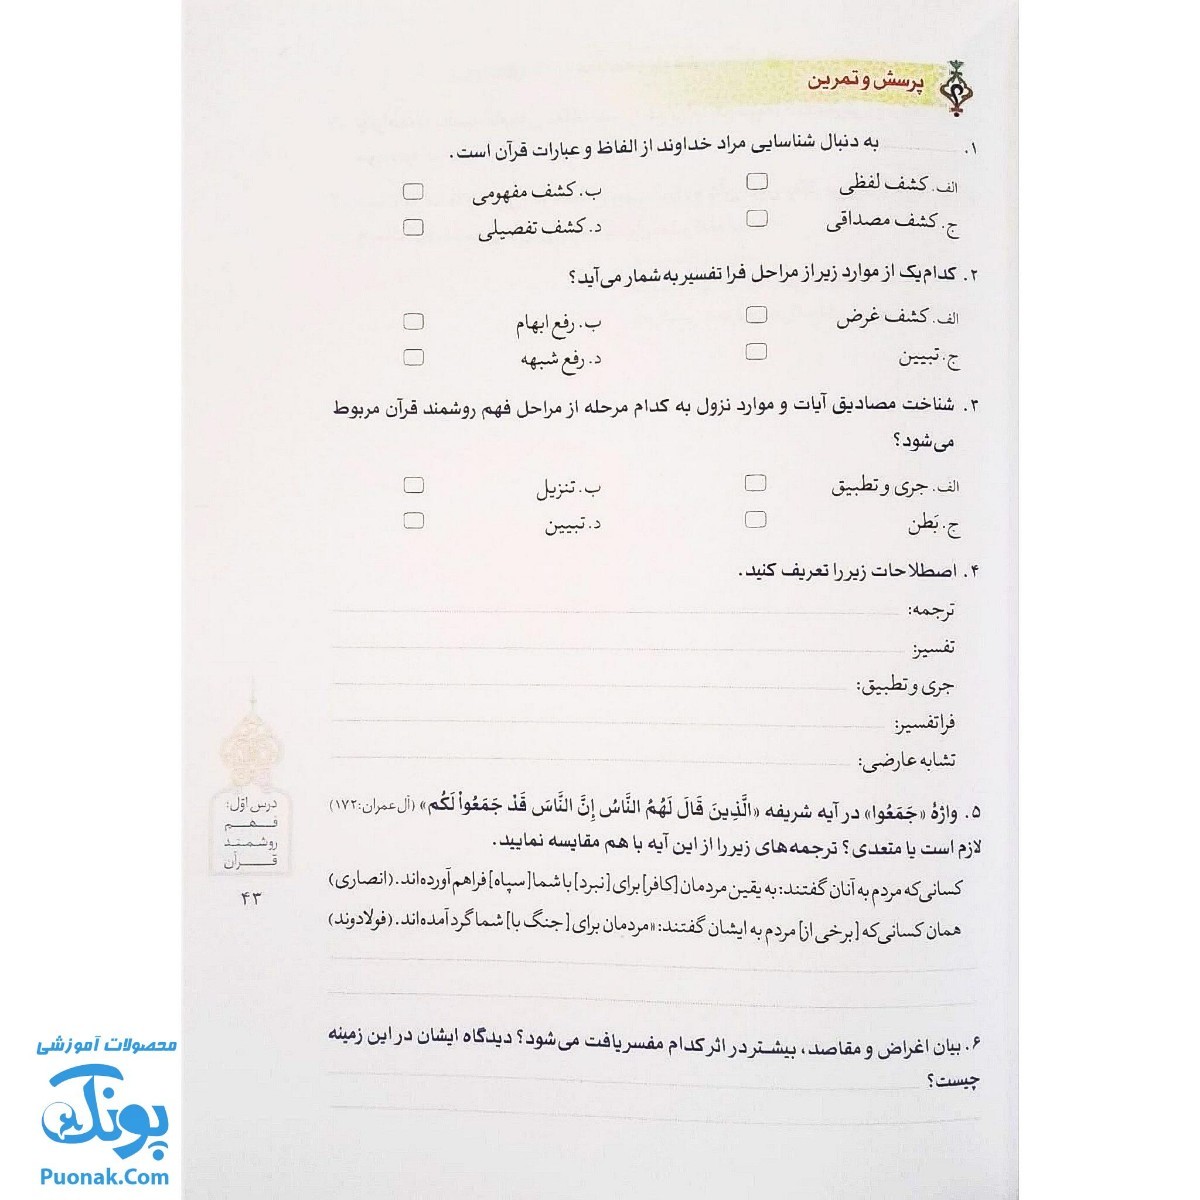 پرسش و تمرین
۱. ............ به دنبال شناسایی مراد خداوند از الفاظ و عبارات قرآن است.
الف. کشف لفظی ب. کشف مفهومی
ج. کشف مصداقی د. کشف تفصیلی
۲. کدام‌یک از موارد زیر از مراحل فرا تفسیر به شمار می‌آید؟
الف. کشف غرض ب. رفع ابهام
ج. تبیین د. رفع شبهه
۳. شناخت مصادیق آیات و موارد نزول به کدام مرحله از مراحل فهم روشمند قرآن مربوط
می‌شود؟
الف. جری و تطبیق ب. تنزیل
ج. بَطن د. تبیین
۴. اصطلاحات زیر را تعریف کنید.
ترجمه:
تفسیر:
جری و تطبیق:
فراتفسیر:
تشابه عارضی:
۵. واژهٔ «جَمَعُوا» در آیه شریفه «الَّذِينَ قَالَ لَهُمُ النَّاسُ إِنَّ النَّاسَ قَدْ جَمَعُواْ لَكُم» (آل عمران:۱۷۲)
لازم است یا متعدی؟ ترجمه‌های زیر را از این آیه با هم مقایسه نمایید.
کسانی‌که مردم به آنان گفتند: به یقین مردمان [کافر] برای [نبرد] با شما [سپاه] فراهم آورده‌اند. (انصاری)
همان کسانی‌که [برخی از] مردم به ایشان گفتند: «مردمان برای [جنگ با] شما گرد آمده‌اند. (فولادوند)
۶. بیان اغراض و مقاصد، بیشتر در اثر کدام مفسر یافت می‌شود؟ دیدگاه ایشان در این زمینه
چیست؟
درس اوّل:
فهم
روشمند
قرآن
۴۳
محصولات آموزشی
پونک
Puonak.Com